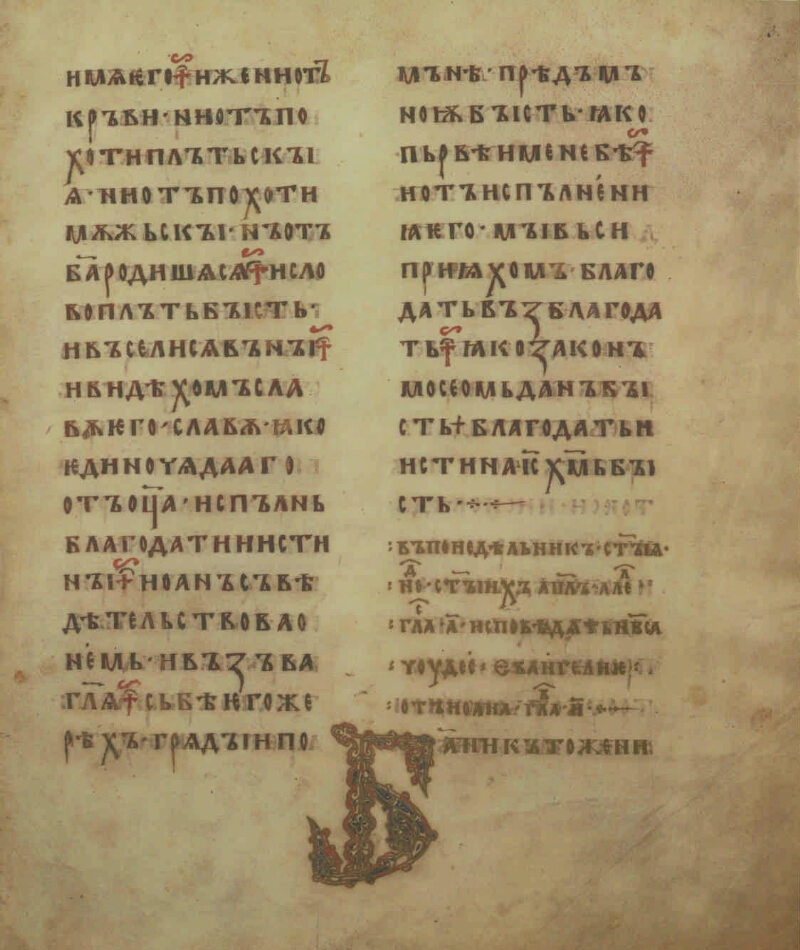 имѧѥго҅ иже ни отъ
кръви· ни отъ по
хоти плътьскꙑ
ѧ· ни отъ похоти
мѫжьскꙑ· нъ отъ
б҃а родишѧ сѧ и сло
во плъть бꙑсть·
и въсели сѧ въ нꙑ
и видѣхомъ сла
вѫ ѥго· славѫ· ꙗко
ѥдиночѧдааго
отъ оц҃а· испълнь
благодати и исти
нꙑ иоанъ съвѣ
дѣтельствова о
немь· и възъва
гл҃ѧ сь бѣ ѥгоже
рѣхъ· грѧдꙑи по
мънѣ· прѣдъ мъ
ноѭ бꙑсть· ꙗко
пьрвѣи мене бѣ
и отъ испълнени
ꙗ ѥго· мꙑ вьси
приꙗхомъ· благо
дать въз благода
ть ꙗко законъ
мосеомь данъ бꙑ
сть благодать и
истина і҃с х҃мь бꙑ
сть·
въ понедѣльникъ· ст҃ꙑꙗ·
не· ст҃ꙑихъ ап҃лъ· але
гла· а҃· исповѣдатѣ
евангелиѥ
от иоана· гла· и҃·
Б ании къто же ни